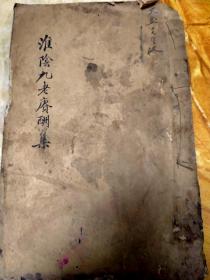 淮陰九老賡酬集